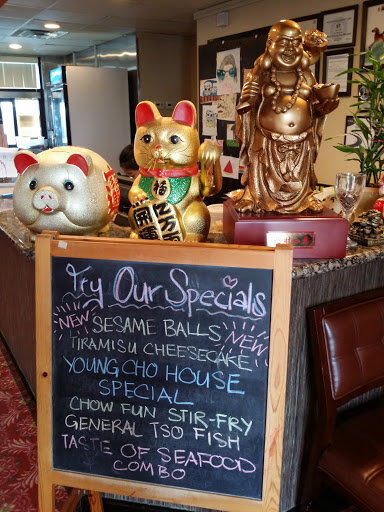 Try Our Specials
NEW SESAME BALLS NEW
TIRAMISU CHEESECAKE
YOUNG CHO HOUSE
SPECIAL
CHOW FUN STIR-FRY
GENERAL TSO FISH
TASTE OF SEAFOOD
COMBO
福